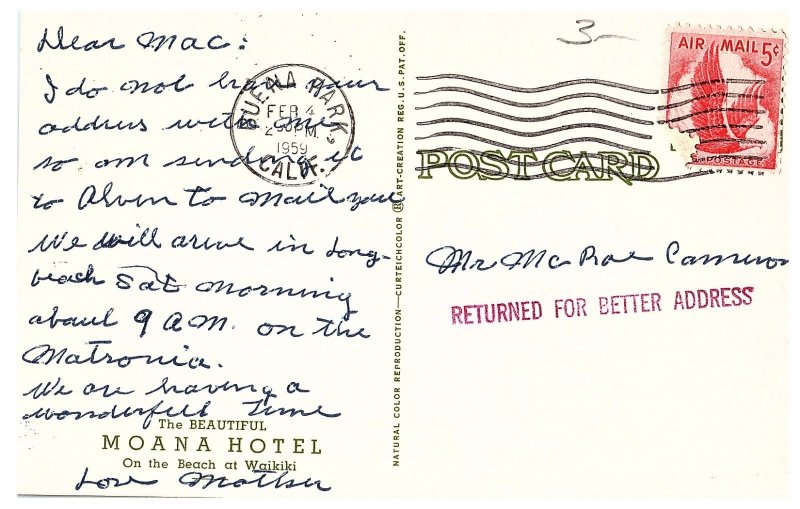 Dear Mac:
I do not have your
address with me
so am sending it
to Alven to mail you
We will arive in Long-
beach Sat morning
about 9 A.M. on the
Matronia.
We are having a
wonderfull time
The BEAUTIFUL
MOANA HOTEL
On the Beach at Waikiki
Love Mother
BUENA PARK,
FEB 4
2 PM
1959
CALIF.
NATURAL COLOR REPRODUCTION—CURTEICHCOLOR ® ART-CREATION REG. U.S. PAT. OFF.
3-
AIR MAIL 5¢
S. POSTAGE
POST CARD
Mr McRae Cameron
RETURNED FOR BETTER ADDRESS